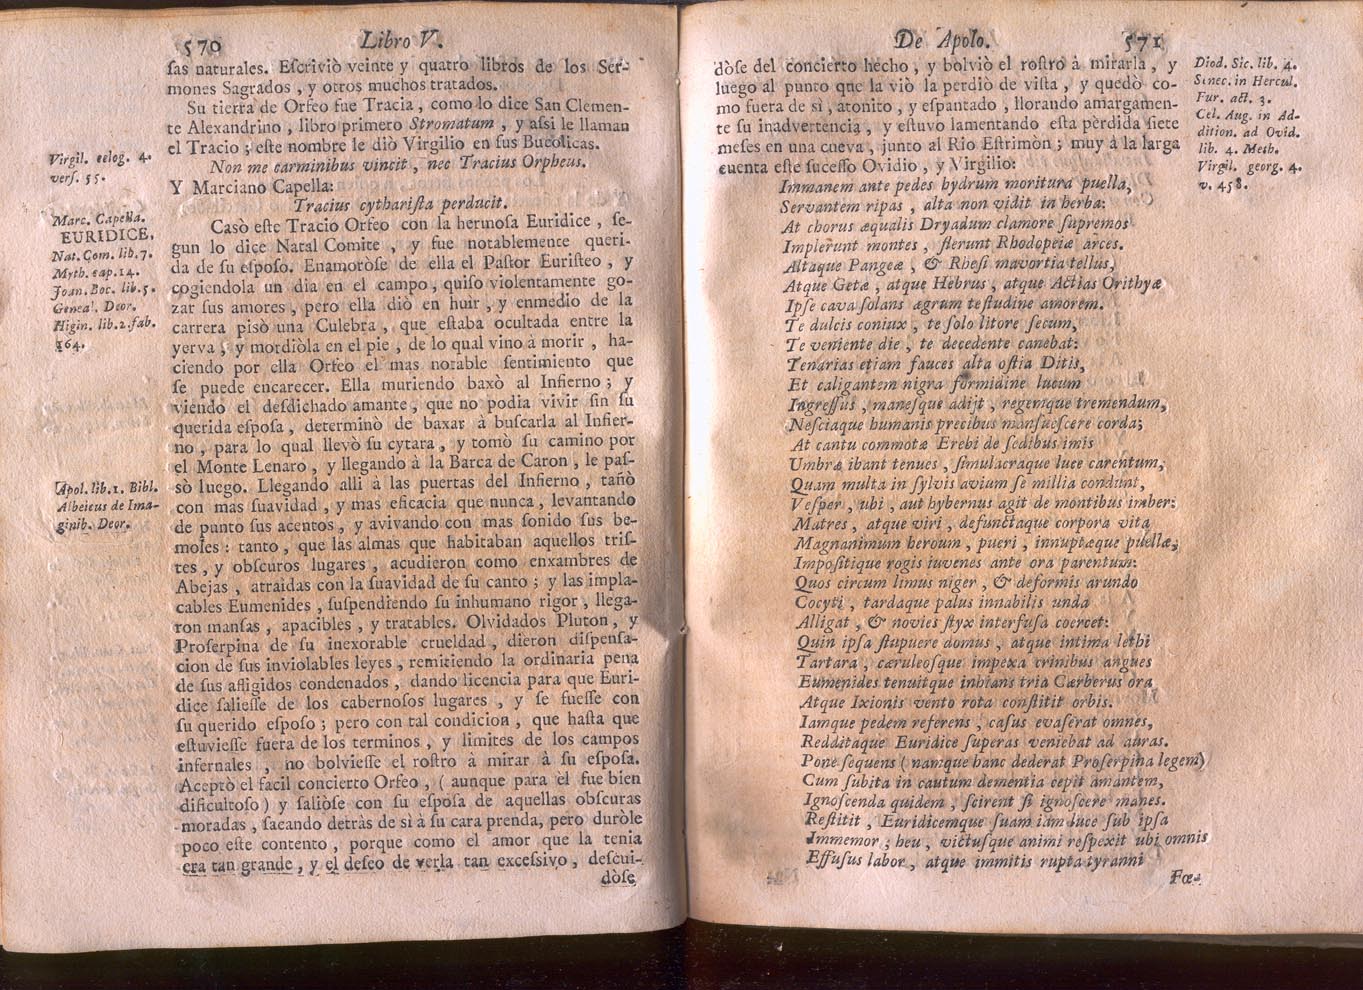 570 Libro V.
ſas naturales. Eſcriviò veinte y quatro libros de los Ser-
mones Sagrados , y otros muchos tratados.
Su tierra de Orfeo fue Tracia , como lo dice San Clemen-
te Alexandrino , libro primero Stromatum , y aſsi le llaman
el Tracio ; eſte nombre le diò Virgilio en ſus Bucolicas.
Non me carminibus vincit , nec Tracius Orpheus.
Y Marciano Capella:
Tracius cythariſta perducit.
Casò eſte Tracio Orfeo con la hermoſa Euridice , ſe-
gun lo dice Natal Comite , y fue notablemente queri-
da de ſu eſpoſo. Enamoròſe de ella el Paſtor Euriſteo , y
cogiendola un dia en el campo, quiſo violentamente go-
zar ſus amores , pero ella diò en huir , y enmedio de la
carrera pisò una Culebra , que eſtaba ocultada entre la
yerva , y mordiòla en el pie , de lo qual vino à morir , ha-
ciendo por ella Orfeo el mas notable ſentimiento que
ſe puede encarecer. Ella muriendo baxò al Infierno ; y
viendo el deſdichado amante , que no podia vivir ſin ſu
querida eſpoſa , determinò de baxar à buſcarla al Infier-
no , para lo qual llevò ſu cytara , y tomò ſu camino por
el Monte Lenaro , y llegando à la Barca de Caron , le paſ-
sò luego. Llegando alli à las puertas del Infierno , tañò
con mas ſuavidad , y mas eficacia que nunca , levantando
de punto ſus acentos , y avivando con mas ſonido ſus be-
moles : tanto , que las almas que habitaban aquellos triſ-
tes , y obſcuros lugares , acudieron como enxambres de
Abejas , atraidas con la ſuavidad de ſu canto ; y las impla-
cables Eumenides , ſuſpendiendo ſu inhumano rigor , llega-
ron manſas , apacibles , y tratables. Olvidados Pluton , y
Proſerpina de ſu inexorable crueldad , dieron diſpenſa-
cion de ſus inviolables leyes , remitiendo la ordinaria pena
de ſus afligidos condenados , dando licencia para que Euri-
dice ſalieſſe de los cabernoſos lugares , y ſe fueſſe con
ſu querido eſpoſo ; pero con tal condicion , que haſta que
eſtuvieſſe fuera de los terminos , y limites de los campos
infernales , no bolvieſſe el roſtro à mirar à ſu eſpoſa.
Aceptò el facil concierto Orfeo , ( aunque para el fue bien
dificultoſo ) y ſaliòſe con ſu eſpoſa de aquellas obſcuras
moradas , ſacando detràs de sì à ſu cara prenda, pero duròle
poco eſte contento , porque como el amor que la tenia
era tan grande , y el deſeo de verla tan exceſsivo , deſcui-
dòſe
Virgil. eclog. 4.
verſ. 55.
Marc. Capella.
EURIDICE.
Nat. Com. lib. 7.
Myth. cap. 14.
Joan. Boc. lib. 5.
Geneal. Deor.
Higin. lib. 2. fab.
164.
Apol. lib. 1. Bibl.
Albeicus de Ima-
ginib. Deor.
De Apolo. 571
dòſe del concierto hecho , y bolviò el roſtro à mirarla , y
luego al punto que la viò la perdiò de viſta , y quedò co-
mo fuera de sì , atonito , y eſpantado , llorando amargamen-
te ſu inadvertencia , y eſtuvo lamentando eſta pèrdida ſiete
meſes en una cueva , junto al Rio Eſtrimòn ; muy à la larga
cuenta eſte ſuceſſo Ovidio , y Virgilio:
Immanem ante pedes hydrum moritura puella,
Servantem ripas , alta non vidit in herba:
At chorus æqualis Dryadum clamore ſupremos
Implerunt montes , flerunt Rhodopeiæ arces.
Altaque Pangea , & Rheſi mavortia tellus,
Atque Getæ , atque Hebrus , atque Actias Orithyæ
Ipſe cava ſolans ægrum teſtudine amorem.
Te dulcis coniux , te ſolo litore ſecum,
Te veniente die , te decedente canebat:
Tenarias etiam fauces alta oſtia Ditis,
Et caligantem nigra formidine lucum
Ingreſſus , maneſque adijt , regemque tremendum,
Neſciaque humanis precibus manſueſcere corda;
At cantu commotæ Erebi de ſedibus imis
Umbræ ibant tenues , ſimulacraque luce carentum,
Quam multa in ſylvis avium ſe millia condunt,
Veſper , ubi , aut hybernus agit de montibus imber:
Matres , atque viri , defunctaque corpora vita
Magnanimum heroum , pueri , innuptæque puellæ,
Impoſitique rogis iuvenes ante ora parentum:
Quos circum limus niger , & deformis arundo
Cocyti , tardaque palus innabilis unda
Alligat , & novies ſtyx interfuſa coercet:
Quin ipſa ſtupuere domus , atque intima lethi
Tartara , cæruleoſque impexa crinibus angues
Eumenides tenuitque inhians tria Cærberus ora
Atque Ixionis vento rota conſtitit orbis.
Iamque pedem referens , caſus evaſerat omnes,
Redditaque Euridice ſuperas veniebat ad auras.
Pone ſequens ( namque hanc dederat Proſerpina legem)
Cum ſubita in cautum dementia cepit amantem,
Ignoſcenda quidem , ſcirent ſi ignoſcere manes.
Reſtitit , Euridicemque ſuam iam luce ſub ipſa
Immemor ; heu , victuſque animi reſpexit ubi omnis
Effuſus labor , atque immitis rupta tyranni
Fœ-
Diod. Sic. lib. 4.
Senec. in Hercul.
Fur. act. 3.
Cel. Aug. in Ad-
dition. ad Ovid.
lib. 4. Meth.
Virgil. georg. 4.
v. 458.